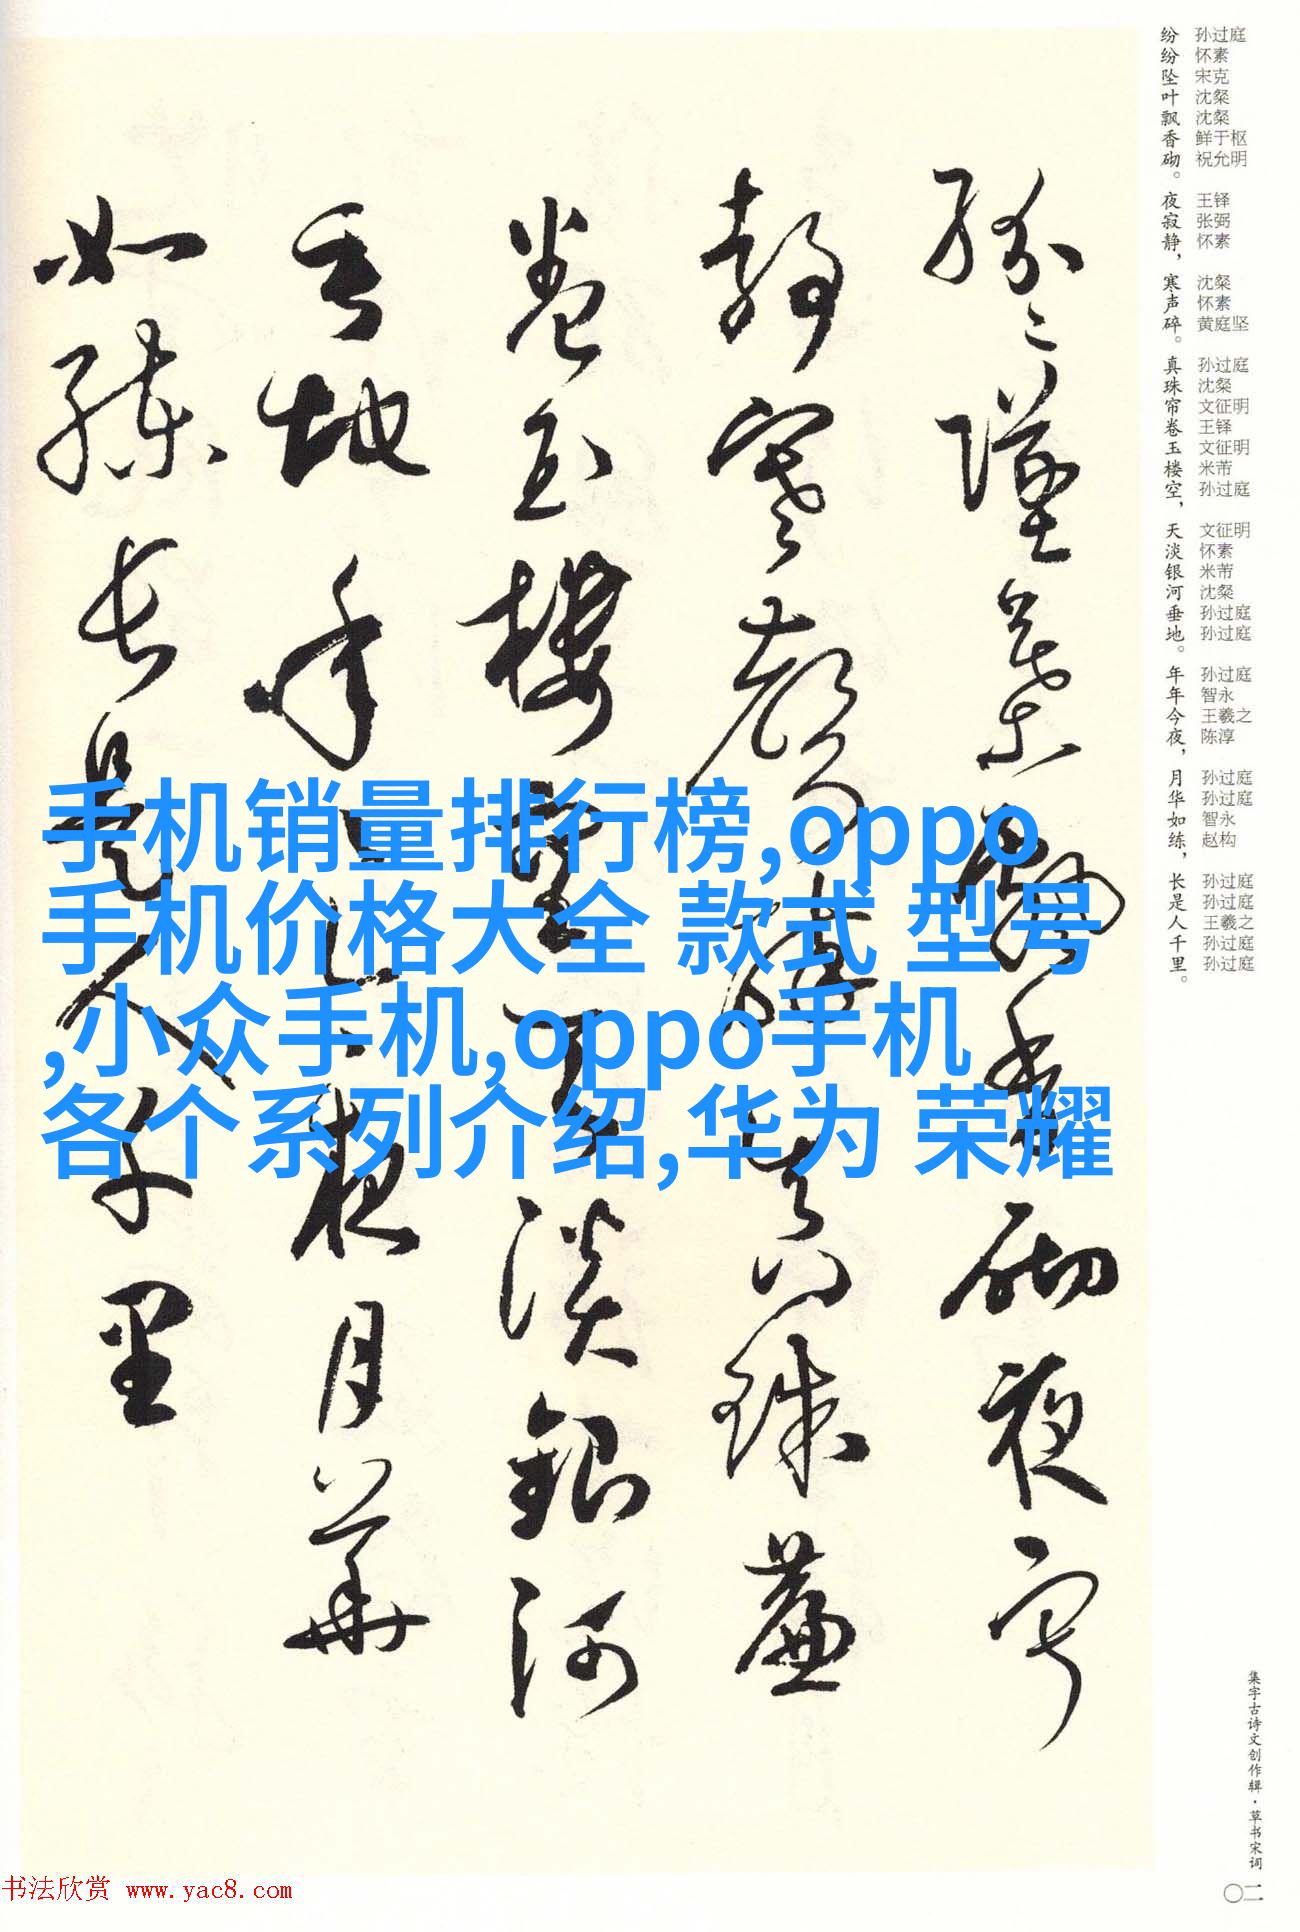 纷纷坠叶飘香砌。夜寂静，寒声碎。真珠帘卷玉楼空，天淡银河垂地。年年今夜，月华如练，长是人千里。
孙过庭
怀素
宋克
沈粲
沈粲
鲜于枢
祝允明
王铎
张弼
怀素
沈粲
怀素
黄庭坚
孙过庭
沈粲
文征明
王铎
文征明
米芾
孙过庭
文征明
怀素
米芾
沈粲
孙过庭
孙过庭
孙过庭
智永
王羲之
陈淳
孙过庭
孙过庭
智永
赵构
孙过庭
孙过庭
王羲之
孙过庭
孙过庭
紛紛墜葉飄香砌夜寂
靜寒聲碎真珠簾
卷玉樓空天淡銀河
垂地年年今夜月華
如練長是人千里
手机销量排行榜,oppo
手机价格大全 款式 型号
,小众手机,oppo手机
各个系列介绍,华为 荣耀
集字古诗文创作辑·草书宋词
〇二
书法欣赏 www.yac8.com